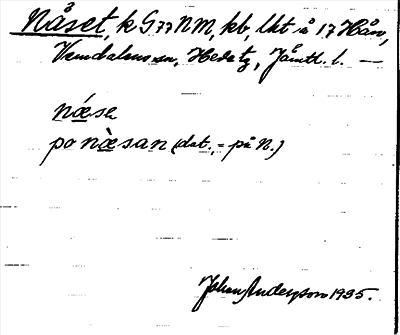 Nåset, k G 77 NM, kb, lkt å 17 Håv,
Vemdalens sn, Hede tg, Jämtl. l. —
næse
po næsan (dat., = på N.)
Johan Anderson 1935.